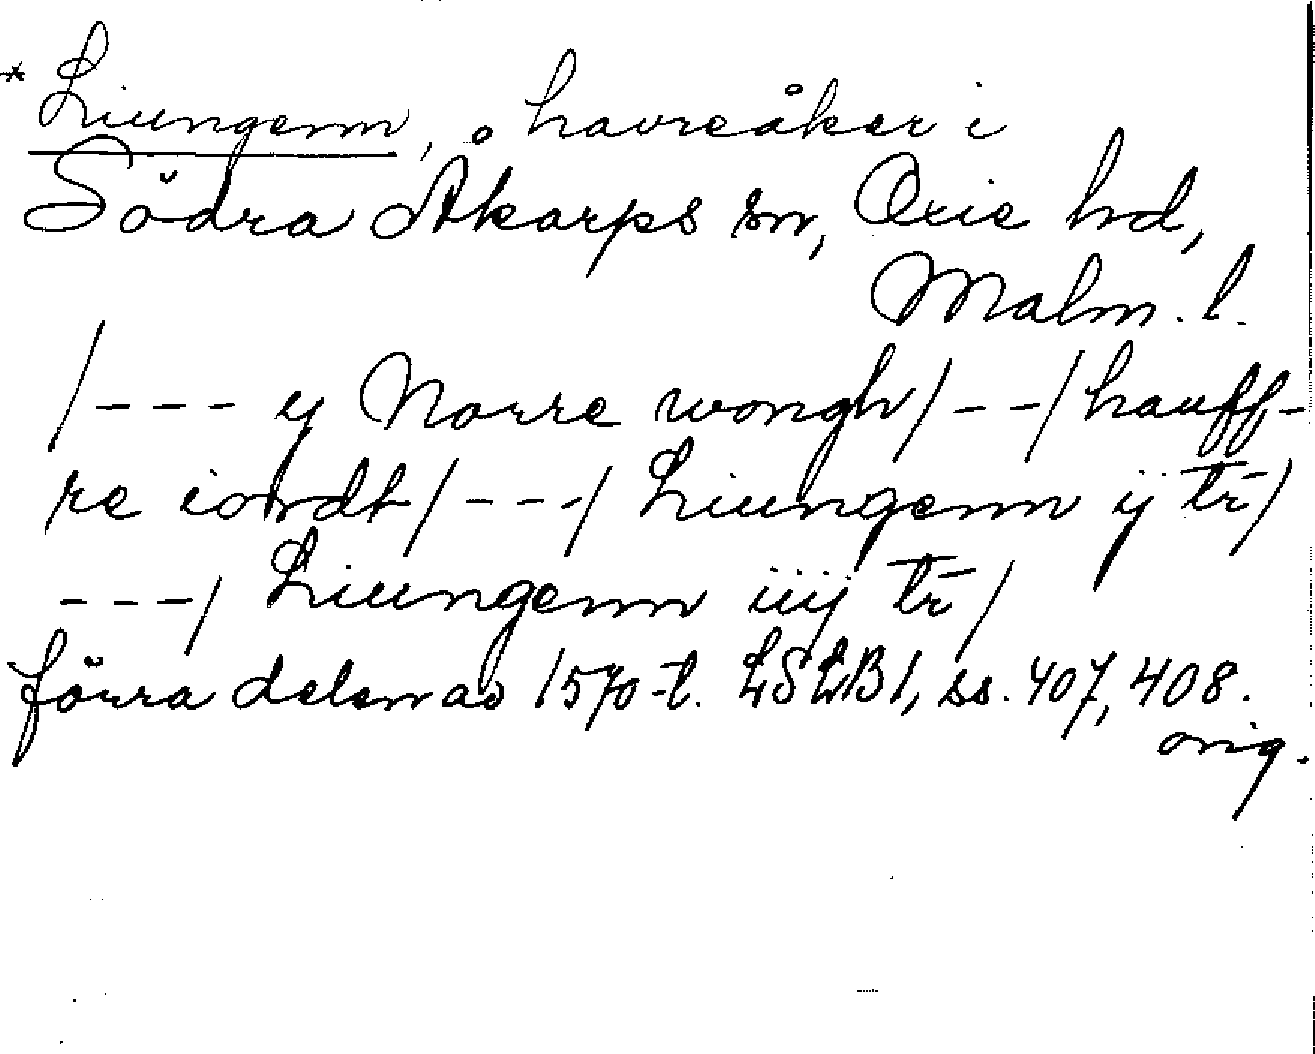 * Liungenn, havreåker i
Södra Åkarps sn, Oxie hd,
Malm. l.
/--- y Norre wongh/--/hauff-
re iordt/---/ Liungenn ij tr̄/
---/ Liungenn iiij tr̄/
förra delen av 1570-t. LSLB1, ss. 407, 408.
orig.